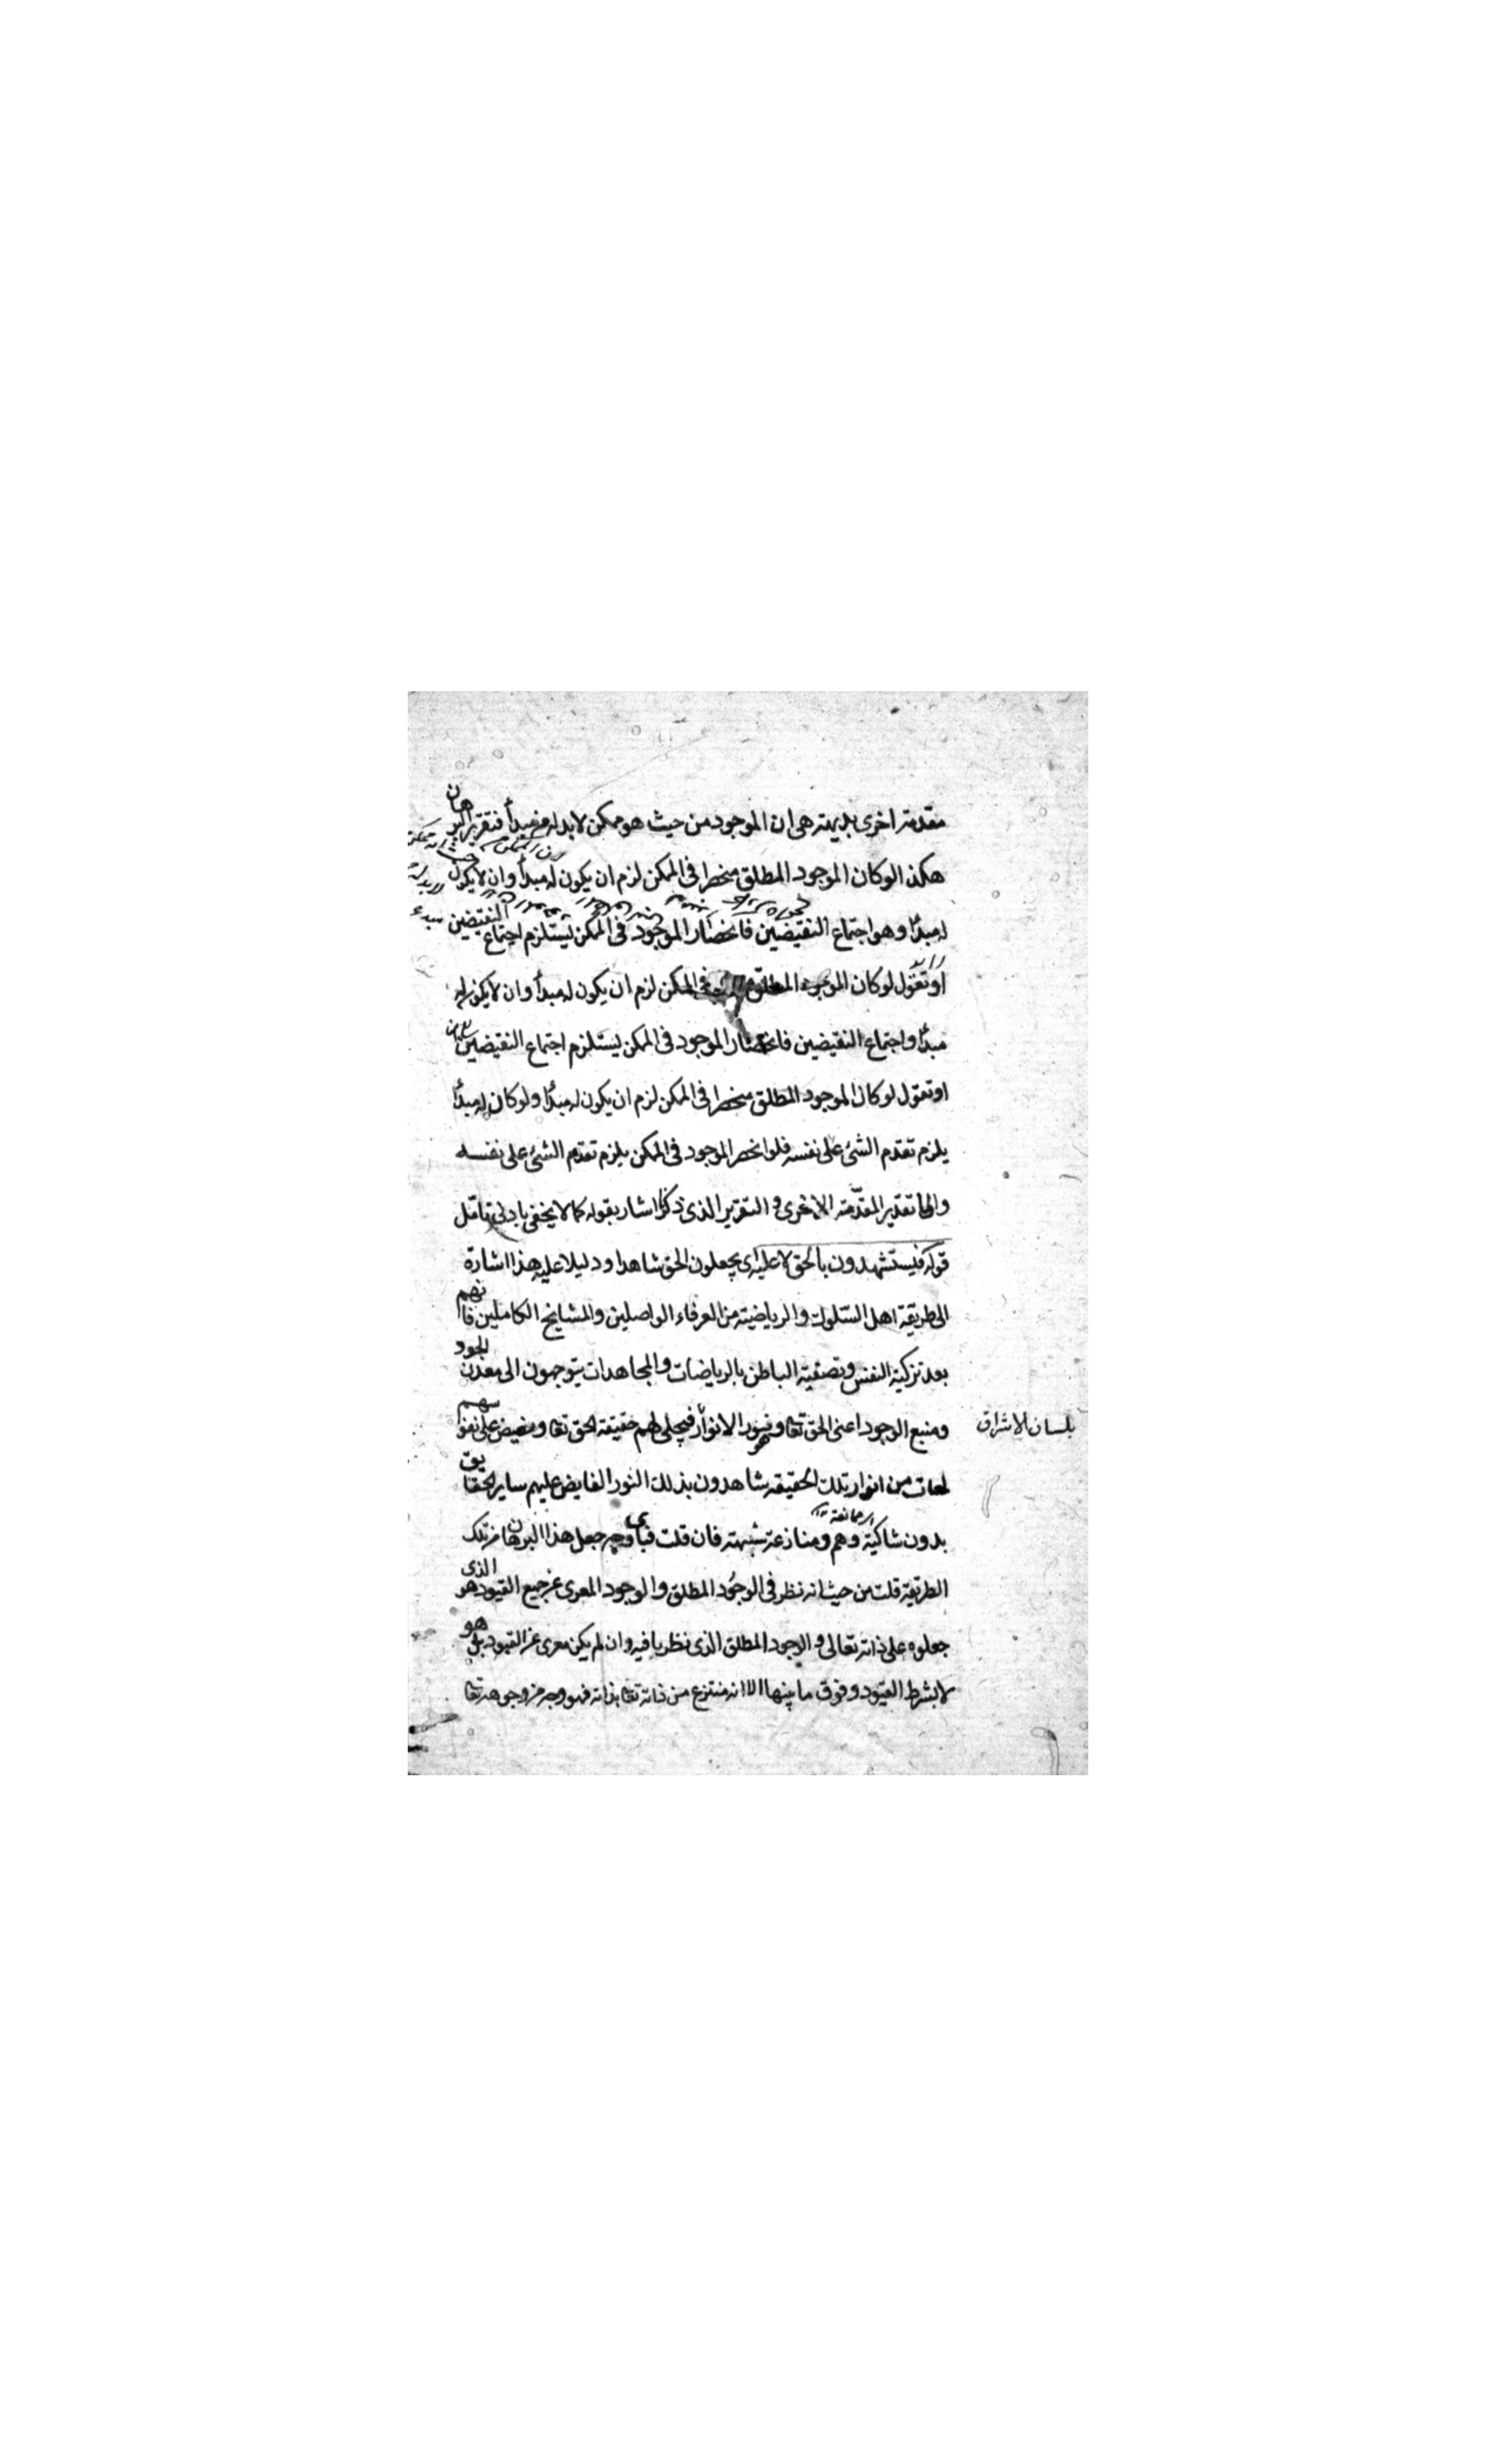 مقدمة اخرى بديهة هى ان الموجود من حيث هو ممكن لابد له من مبدأ فتقرير البرهان
هكذا لو كان الموجود المطلق منحصرا فى الممكن لزم ان يكون له مبدأ وان لا يكون
له مبدأ وهو اجتماع النقيضين فانحصار الموجود فى الممكن يستلزم اجتماع النقيضين
او تقول لو كان الموجود المطلق فى الممكن لزم ان يكون له مبدأ وان لا يكون له
مبدأ واجتماع النقيضين فانحصار الموجود فى الممكن يستلزم اجتماع النقيضين
او تقول لو كان الموجود المطلق منحصرا فى الممكن لزم ان يكون له مبدأ ولو كان له مبدأ
يلزم تقدم الشئ على نفسه فلو انحصر الموجود فى الممكن يلزم تقدم الشئ على نفسه
والى تقدير المقدّمة الاخرى و التقرير الذى ذكرنا اشار بقوله كما لا يخفى بادنى تامّل
قوله فيستشهدون بالحق لا عليه اى يجعلون الحق شاهدا ودليلا عليه هذا اشارة
الى طريقة اهل السّلوك والرياضية من العرفاء الواصلين والمشايخ الكاملين فانهم
بعد تزكية النفس وتصفية الباطن بالرياضات والمجاهدات يتوجهون الى معدن الجود
ومنبع الوجود اعنى الحق تعا وهو نور الانوار فيجلى لهم حقيقة الحق تعا ويفيض على نفوسهم
بلسان الاشراق
لمعات من انوار تلك الحقيقه يشاهدون بذلك النور الفايض عليهم ساير الحقايق
بدون شاكية وهم ومنازعة شبهته فان قلت فباى وجه جعل هذا البرهان من تلك
الطريقة قلت من حيث انه نظر فى الوجود المطلق والوجود المعرى عن جميع القيود هو الذى
جعلوه على ذاته تعالى و الوجود المطلق الذى نظر بافيه وان لم يكن معرى عن القيود بل هو
لا بشرط القيود وفوق ما بينها الا انه منتزع من ذاته تعا بذاته فهو وجه من وجوهه تعا